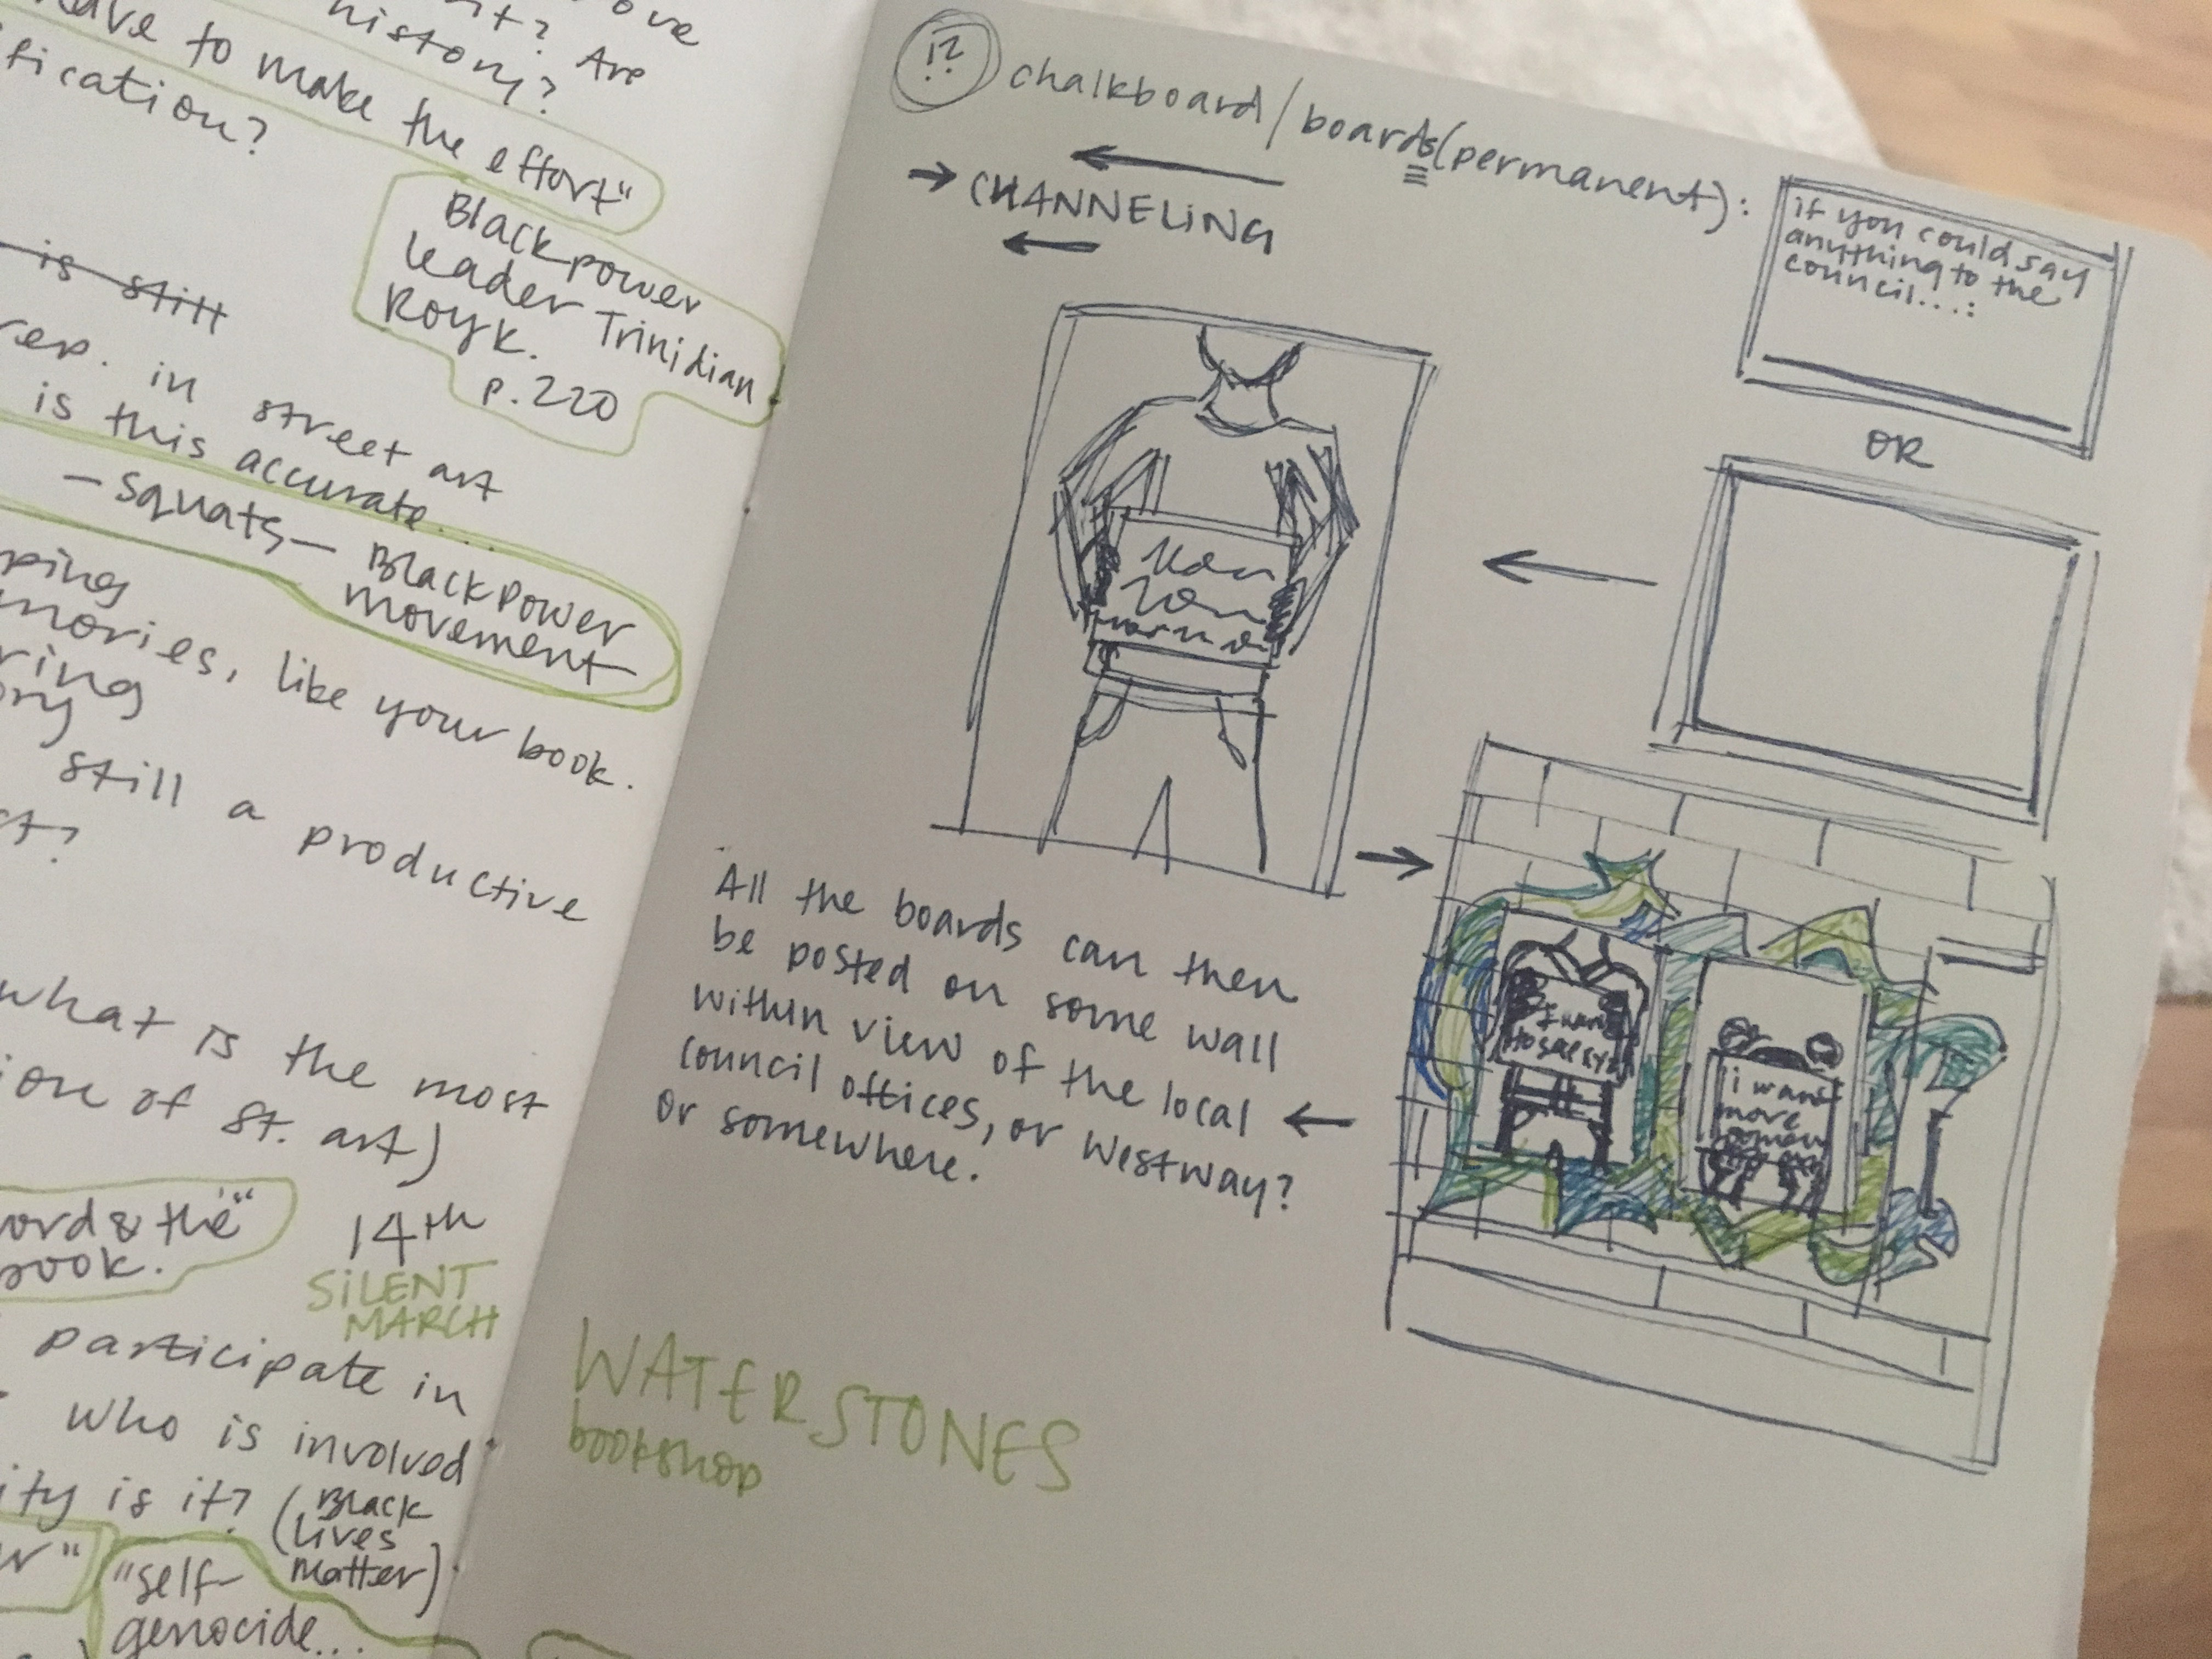 ove
nt? Are
history?
ave to make the effort"
fication?
Black power
leader Trinidian
Roy K.
p. 220
is still
rep. in street art
is this accurate...
- squats - Black Power
movement
pping
mories, like your book.
ring
ory
still a productive
ct?
what is the most
ion of st. art)
ord & the"
book.
14th
SILENT
MARCH
participate in
who is involved
ity is it? (Black
Lives
Matter)
"self-
genocide...
!?
chalkboard/boards (permanent):
CHANNELING
if you could say
anything to the
council...:
OR
All the boards can then
be posted on some wall
within view of the local
council offices, or Westway?
or somewhere.
I want
i want
more
WATERSTONES
bookshop